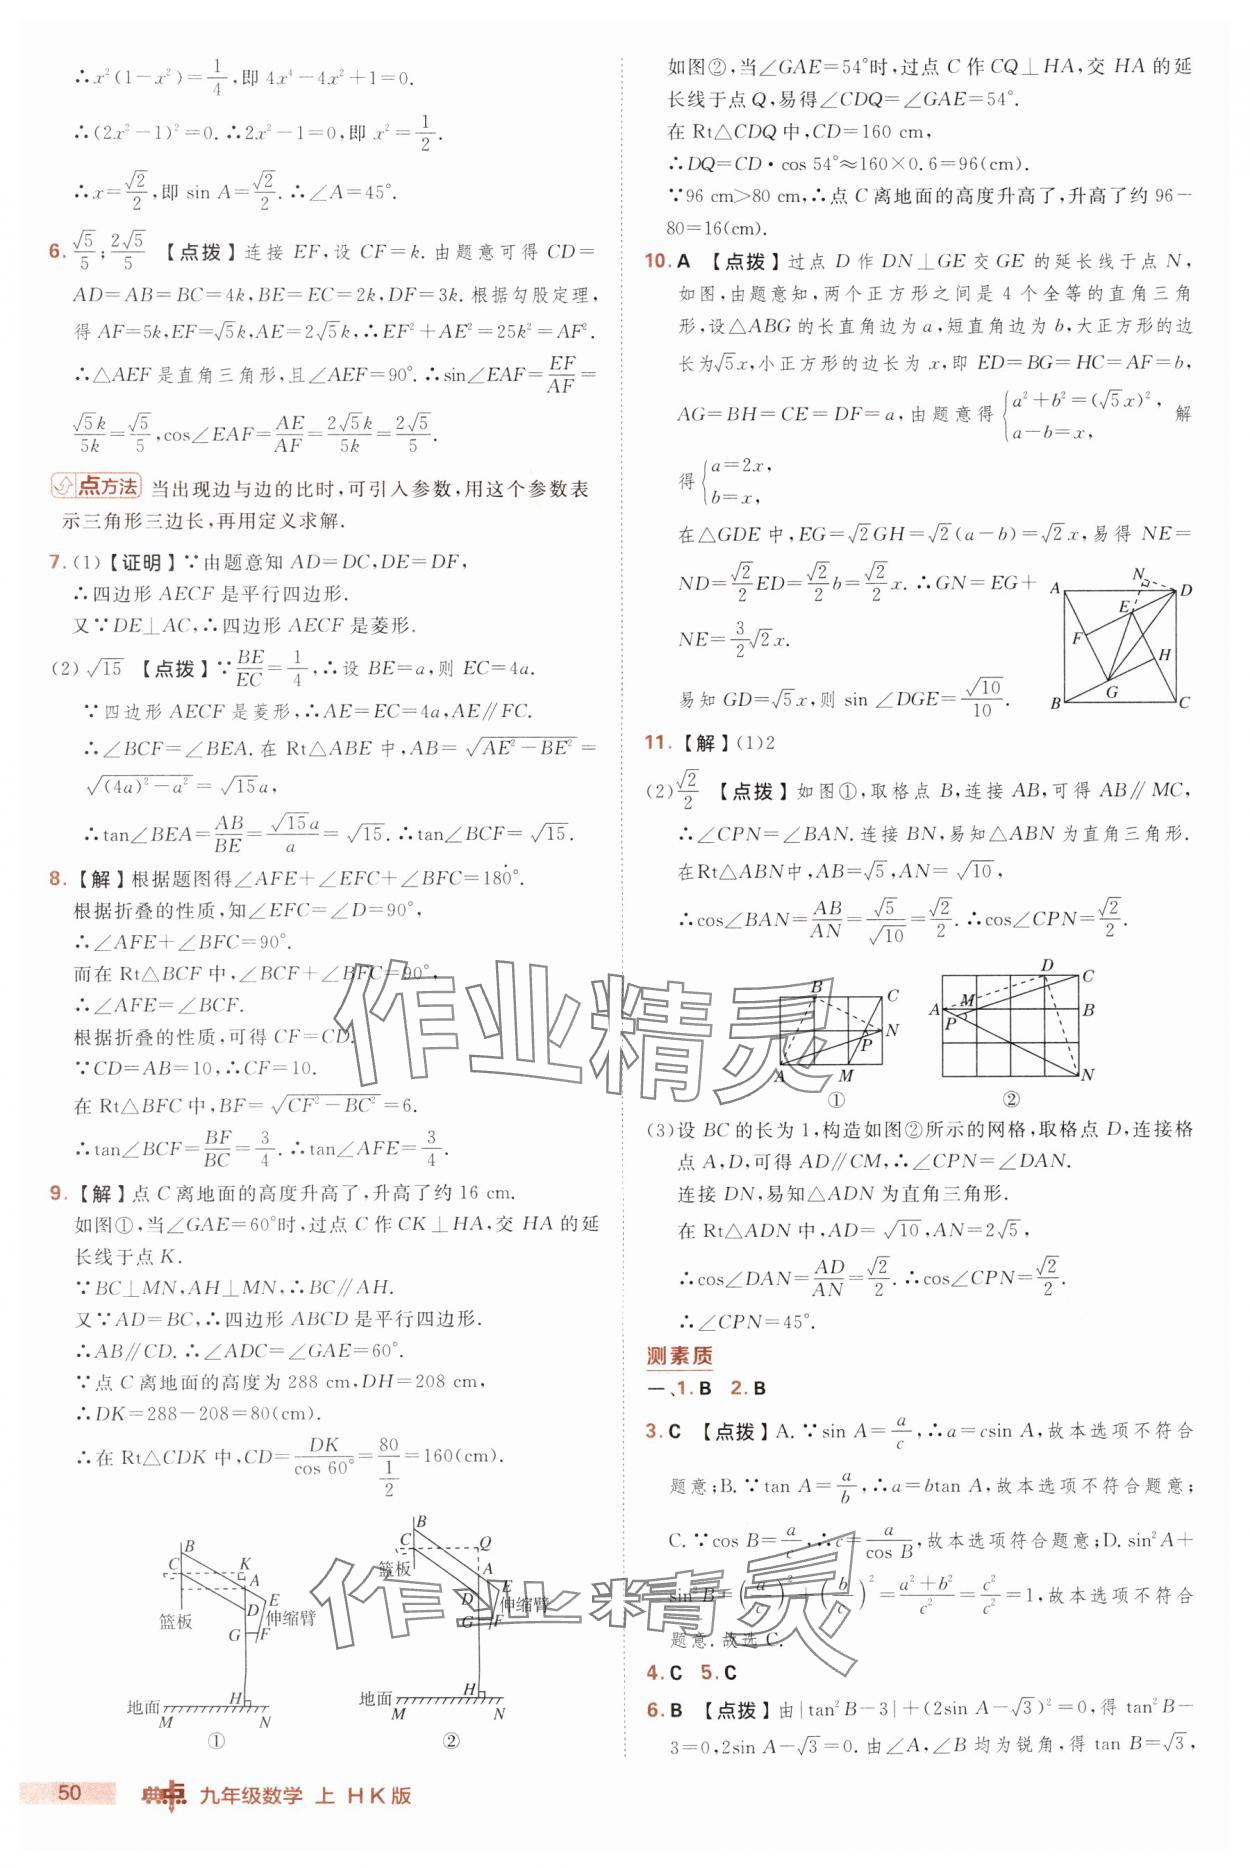 ∴x²(1－x²)＝1/4,即 4x⁴－4x²＋1＝0.
∴(2x²－1)²＝0.∴2x²－1＝0,即 x²＝1/2.
∴x＝√2/2,即 sin A＝√2/2.∴∠A＝45°.
6. √5/5；2√5/5 【点拨】连接 EF,设 CF＝k.由题意可得 CD＝
AD＝AB＝BC＝4k,BE＝EC＝2k,DF＝3k.根据勾股定理,
得 AF＝5k,EF＝√5k,AE＝2√5k,∴EF²＋AE²＝25k²＝AF².
∴△AEF 是直角三角形,且∠AEF＝90°.∴sin∠EAF＝EF/AF＝
√5k/5k＝√5/5,cos∠EAF＝AE/AF＝2√5k/5k＝2√5/5.
点方法 当出现边与边的比时,可引入参数,用这个参数表
示三角形三边长,再用定义求解.
7. (1)【证明】∵由题意知 AD＝DC,DE＝DF,
∴四边形 AECF 是平行四边形.
又∵DE⊥AC,∴四边形 AECF 是菱形.
(2)√15 【点拨】∵BE/EC＝1/4,∴设 BE＝a,则 EC＝4a.
∵四边形 AECF 是菱形,∴AE＝EC＝4a,AE∥FC.
∴∠BCF＝∠BEA.在 Rt△ABE 中,AB＝√(AE²－BE²)＝
√((4a)²－a²)＝√15a,
∴tan∠BEA＝AB/BE＝√15a/a＝√15.∴tan∠BCF＝√15.
8. 【解】根据题图得∠AFE＋∠EFC＋∠BFC＝180°.
根据折叠的性质,知∠EFC＝∠D＝90°,
∴∠AFE＋∠BFC＝90°.
而在 Rt△BCF 中,∠BCF＋∠BFC＝90°,
∴∠AFE＝∠BCF.
根据折叠的性质,可得 CF＝CD.
∵CD＝AB＝10,∴CF＝10.
在 Rt△BFC 中,BF＝√(CF²－BC²)＝6.
∴tan∠BCF＝BF/BC＝3/4.∴tan∠AFE＝3/4.
9. 【解】点 C 离地面的高度升高了,升高了约 16 cm.
如图①,当∠GAE＝60°时,过点 C 作 CK⊥HA,交 HA 的延
长线于点 K.
∵BC⊥MN,AH⊥MN,∴BC∥AH.
又∵AD＝BC,∴四边形 ABCD 是平行四边形.
∴AB∥CD.∴∠ADC＝∠GAE＝60°.
∵点 C 离地面的高度为 288 cm,DH＝208 cm,
∴DK＝288－208＝80(cm).
∴在 Rt△CDK 中,CD＝DK/cos 60°＝80/(1/2)＝160(cm).
B C K A D E G F H M N 篮板 伸缩臂 地面 ①
B C Q A E D G F H M N 篮板 伸缩臂 地面 ②
50 典点 九年级数学 上 HK版
如图②,当∠GAE＝54°时,过点 C 作 CQ⊥HA,交 HA 的延
长线于点 Q,易得∠CDQ＝∠GAE＝54°.
在 Rt△CDQ 中,CD＝160 cm,
∴DQ＝CD·cos 54°≈160×0.6＝96(cm).
∵96 cm＞80 cm,∴点 C 离地面的高度升高了,升高了约 96－
80＝16(cm).
10. A 【点拨】过点 D 作 DN⊥GE 交 GE 的延长线于点 N,
如图,由题意知,两个正方形之间是 4 个全等的直角三角
形,设△ABG 的长直角边为 a,短直角边为 b,大正方形的边
长为√5x,小正方形的边长为 x,即 ED＝BG＝HC＝AF＝b,
AG＝BH＝CE＝DF＝a,由题意得{a²＋b²＝(√5x)², a－b＝x, 解
得{a＝2x, b＝x,
在△GDE 中,EG＝√2GH＝√2(a－b)＝√2x,易得 NE＝
ND＝√2/2ED＝√2/2b＝√2/2x.∴GN＝EG＋
NE＝3/2√2x.
易知 GD＝√5x,则 sin∠DGE＝√10/10.
A N D E F H G B C
11. 【解】(1)2
(2)√2/2 【点拨】如图①,取格点 B,连接 AB,可得 AB∥MC,
∴∠CPN＝∠BAN.连接 BN,易知△ABN 为直角三角形.
在Rt△ABN中,AB＝√5,AN＝√10,
∴cos∠BAN＝AB/AN＝√5/√10＝√2/2.∴cos∠CPN＝√2/2.
B C N P A M ①
D C A M B P N ②
(3)设 BC 的长为 1,构造如图②所示的网格,取格点 D,连接格
点 A,D,可得 AD∥CM,∴∠CPN＝∠DAN.
连接 DN,易知△ADN 为直角三角形.
在 Rt△ADN 中,AD＝√10,AN＝2√5,
∴cos∠DAN＝AD/AN＝√2/2.∴cos∠CPN＝√2/2.
∴∠CPN＝45°.
测素质
一、1. B 2. B
3. C 【点拨】A.∵sin A＝a/c,∴a＝csin A,故本选项不符合
题意;B.∵tan A＝a/b,∴a＝btan A,故本选项不符合题意;
C.∵cos B＝a/c,∴c＝a/cos B,故本选项符合题意;D.sin²A＋
sin²B＝(a/c)²＋(b/c)²＝(a²＋b²)/c²＝c²/c²＝1,故本选项不符合
题意.故选 C.
4. C 5. C
6. B 【点拨】由|tan²B－3|＋(2sin A－√3)²＝0,得 tan²B－
3＝0,2sin A－√3＝0.由∠A,∠B 均为锐角,得 tan B＝√3,
作业精灵
作业精灵